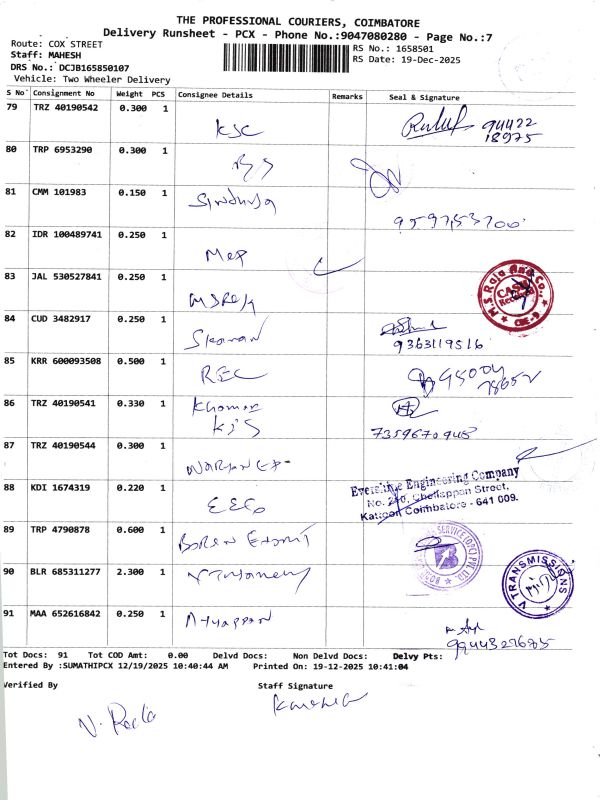 THE PROFESSIONAL COURIERS, COIMBATORE
Delivery Runsheet - PCX - Phone No.:9047080280 - Page No.:7
Route: COX STREET
RS No.: 1658501
Staff: MAHESH
RS Date: 19-Dec-2025
DRS No.: DCJB165850107
Vehicle: Two Wheeler Delivery
S No Consignment No Weight PCS Consignee Details Remarks Seal & Signature
79 TRZ 40190542 0.300 1 KSC 94422
18975
80 TRP 6953290 0.300 1
81 CMM 101983 0.150 1 Sindhuja
82 IDR 100489741 0.250 1 Mep
83 JAL 530527841 0.250 1 MSRaja M.S. Raja And Co., CASH Received CBE-9
84 CUD 3482917 0.250 1
9363119516
85 KRR 600093508 0.500 1 REC 95004
78652
86 TRZ 40190541 0.330 1
KJ'S 7359670948
87 TRZ 40190544 0.300 1
88 KDI 1674319 0.220 1 EECo Evershine Engineering Company
No. 240, Chellappan Street,
Kattoor Coimbatore - 641 009.
89 TRP 4790878 0.600 1
90 BLR 685311277 2.300 1 V TRANSMISSIONS
91 MAA 652616842 0.250 1 Ayyappan
9944327685
Tot Docs: 91 Tot COD Amt: 0.00 Delvd Docs: Non Delvd Docs: Delvy Pts:
Entered By :SUMATHIPCX 12/19/2025 10:40:44 AM Printed On: 19-12-2025 10:41:04
Verified By Staff Signature